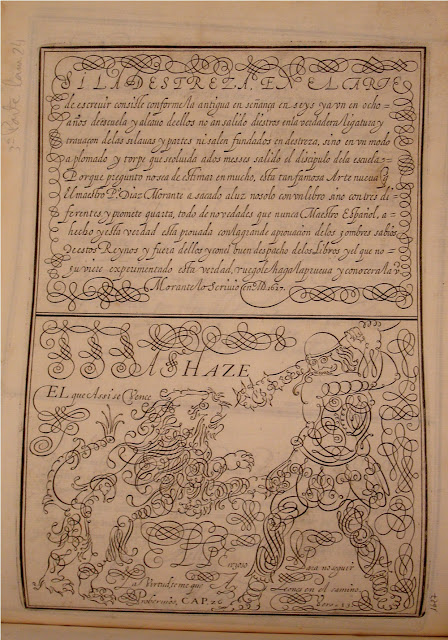 SI LA DESTREZA, EN EL ARTE
de escreuir consiste conforme la antigua en señança en seys ya vn en ocho
años de escuela y al cauo de ellos no an salido diestros en la verdadera ligatura y
trauaçon de las y partes ni salen fundados en destreza, sino en vn modo
a plomado y torpe que seoluida a dos meses salido el discipulo de la escuela
Porque pregunto no sea de estimar en mucho, esta tan famosa Arte nueua
El maestro Po. Diaz Morante a sacado a luz no solo con vn libro sino con tres di=
ferentes y promete quarta, todo de nouedades que nunca Maestro Español, a=
hecho y esta verdad esta prouada con la grande aprouacion de los ombres sabios
De estos Reynos y fuera dellos y con el buen despacho de los Libros y el que no
tuuiere experimentado esta verdad, ruegole haga la prueua y conocera la v
Morante lo Screuio en M.D. 1627.
HAZE
EL que Assi se Vence
La Virtud teme que
Proueruios, CAP. 26
Para no seguir
Leona en el camino
3a Parte Lam 21